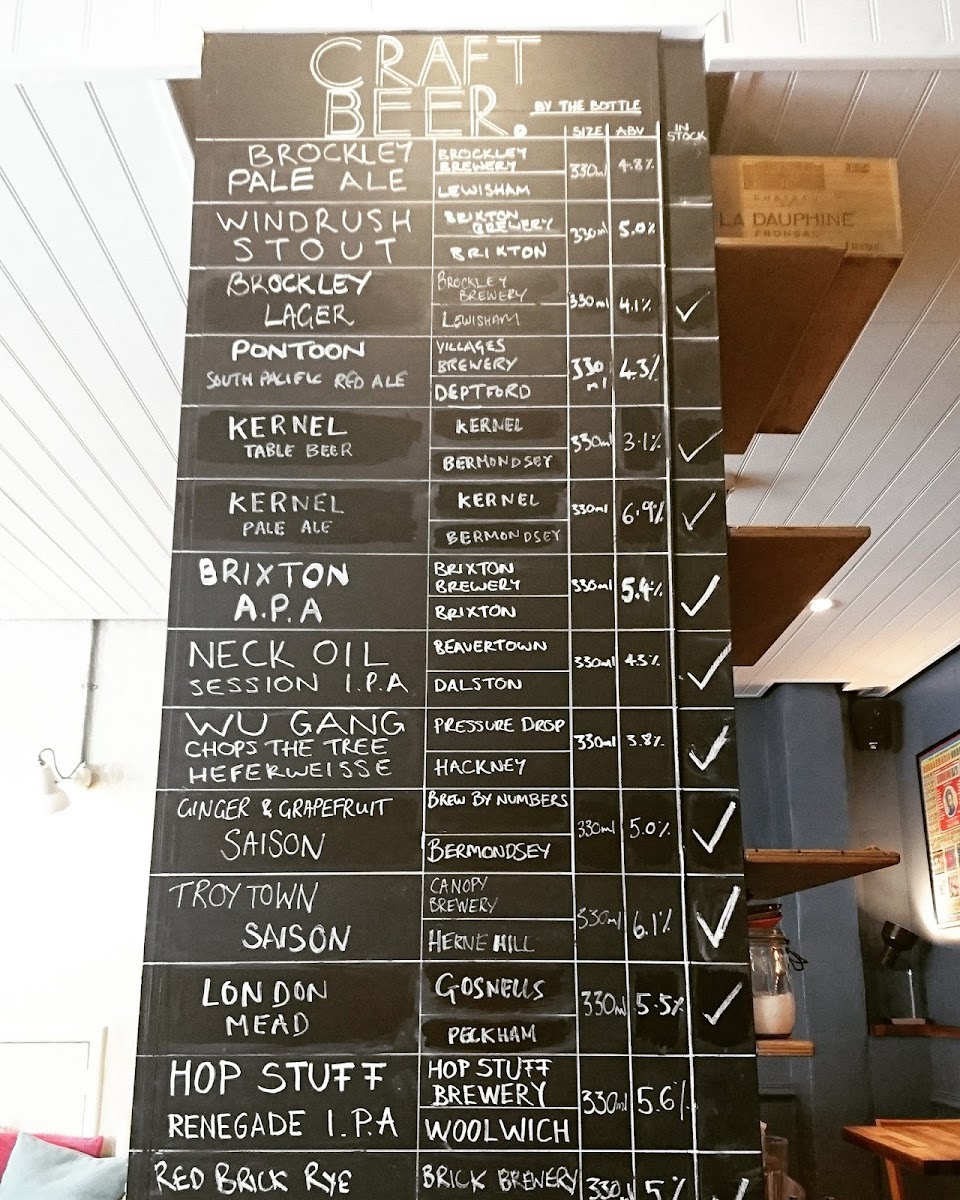 CRAFT
BEER.
BY THE BOTTLE
SIZE ABV IN STOCK
BROCKLEY
PALE ALE
BROCKLEY
BREWERY
LEWISHAM
330ml 4.8%
WINDRUSH
STOUT
BRIXTON
BREWERY
BRIXTON
330ml 5.0%
BROCKLEY
LAGER
BROCKLEY
BREWERY
LEWISHAM
330ml 4.1% ✓
PONTOON
SOUTH PACIFIC RED ALE
VILLAGES
BREWERY
DEPTFORD
330
ml
4.3%
KERNEL
TABLE BEER
KERNEL
BERMONDSEY
330ml 3.1% ✓
KERNEL
PALE ALE
KERNEL
BERMONDSEY
330ml 6.9% ✓
BRIXTON
A.P.A
BRIXTON
BREWERY
BRIXTON
330ml 5.4% ✓
NECK OIL
SESSION I.P.A
BEAVERTOWN
DALSTON
330ml 4.3% ✓
WU GANG
CHOPS THE TREE
HEFERWEISSE
PRESSURE DROP
HACKNEY
330ml 3.8% ✓
GINGER & GRAPEFRUIT
SAISON
BREW BY NUMBERS
BERMONDSEY
330ml 5.0% ✓
TROY TOWN
SAISON
CANOPY
BREWERY
HERNE HILL
330ml 6.1% ✓
LONDON
MEAD
GOSNELLS
PECKHAM
330ml 5.5% ✓
HOP STUFF
RENEGADE I.P.A
HOP STUFF
BREWERY
WOOLWICH
330ml 5.6%
RED BRICK RYE
BRICK BREWERY
330ml 5% ✓
LA DAUPHINE
FRONSAC